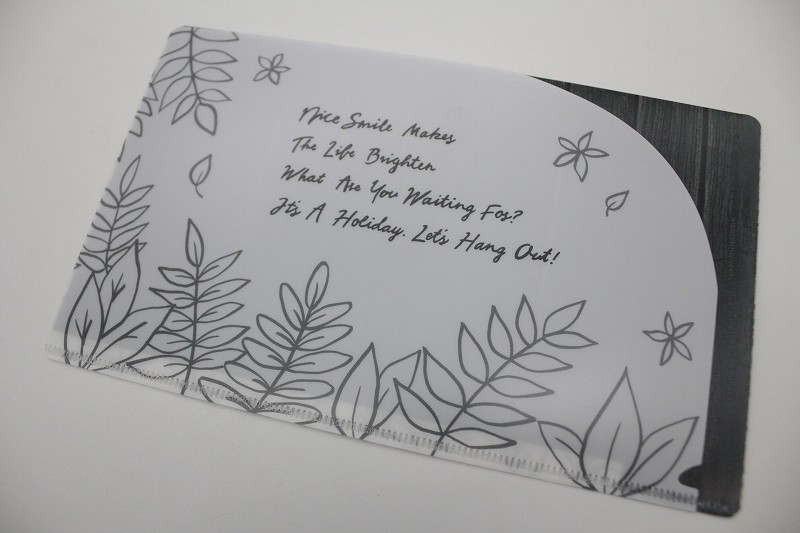 Nice Smile Makes
The Life Brighten
What Are You Waiting For?
It's A Holiday. Let's Hang Out!